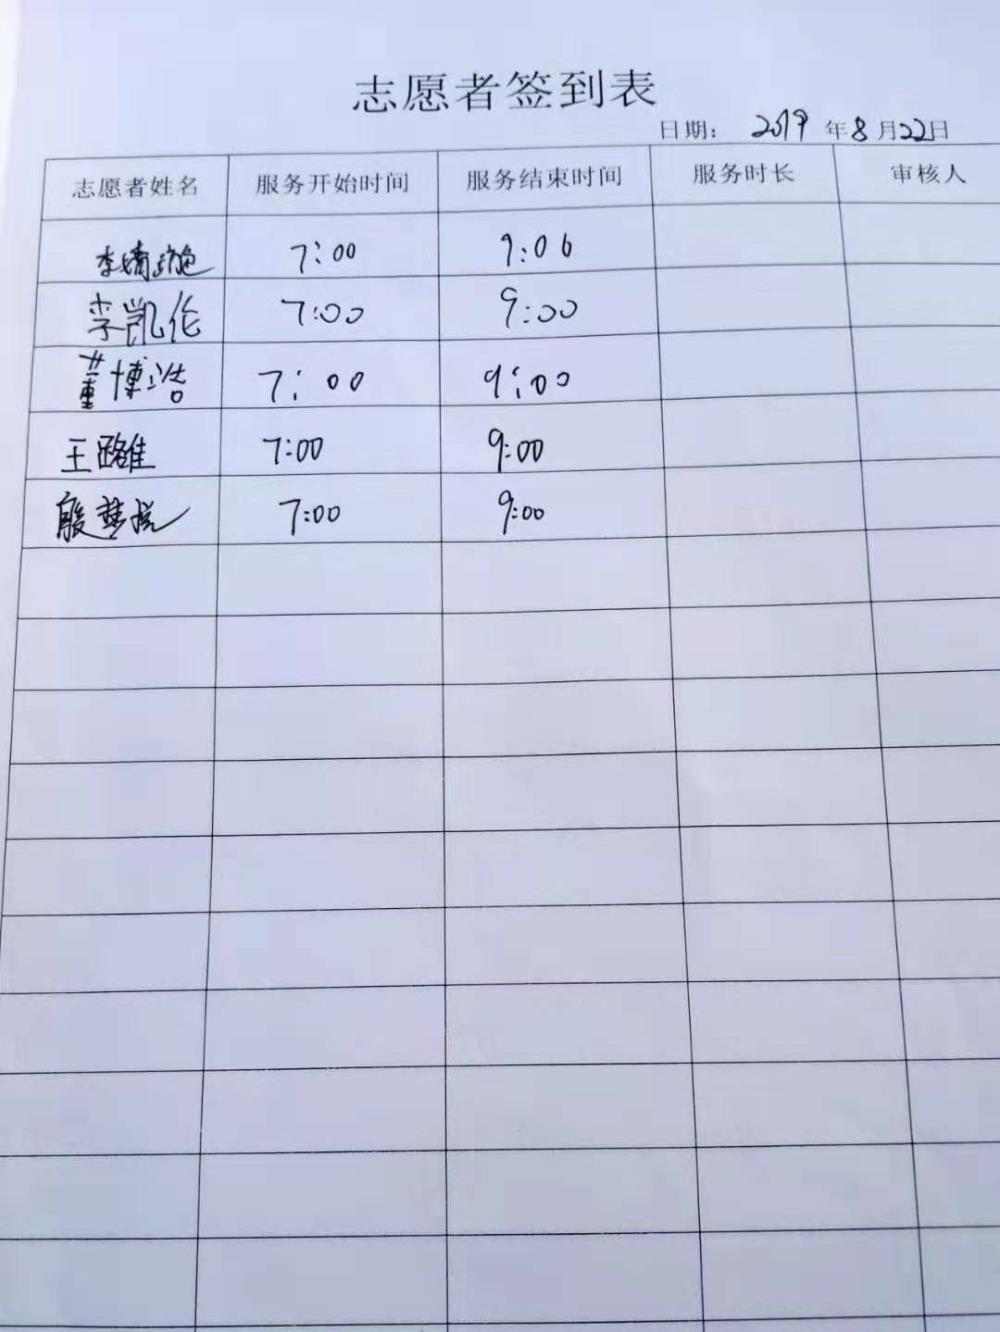 志愿者签到表
日期: 2019 年 8 月 22 日
志愿者姓名 服务开始时间 服务结束时间 服务时长 审核人
李婧 7:00 9:06
李凯伦 7:00 9:00
董博浩 7:00 9:00
王璐佳 7:00 9:00
殷梦悦 7:00 9:00